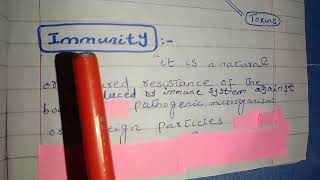 Toxins
Immunity :-
"it is a natural
or red resistance of the
produced by immune system against
bo pathogenic microorganisms
or eign particles